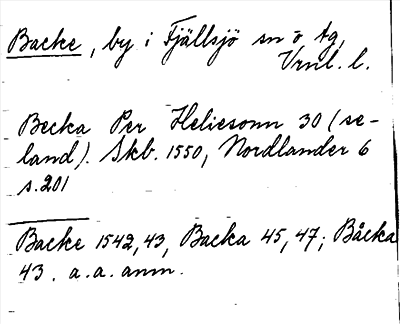 Backe, by i Fjällsjö sn o tg,
Vrnl. l.
Becka Per Heliesonn 30 (se-
land). Skb. 1550, Nordlander 6
s.201
Backe 1542,43, Backa 45,47; Båcka
43. a.a. anm.